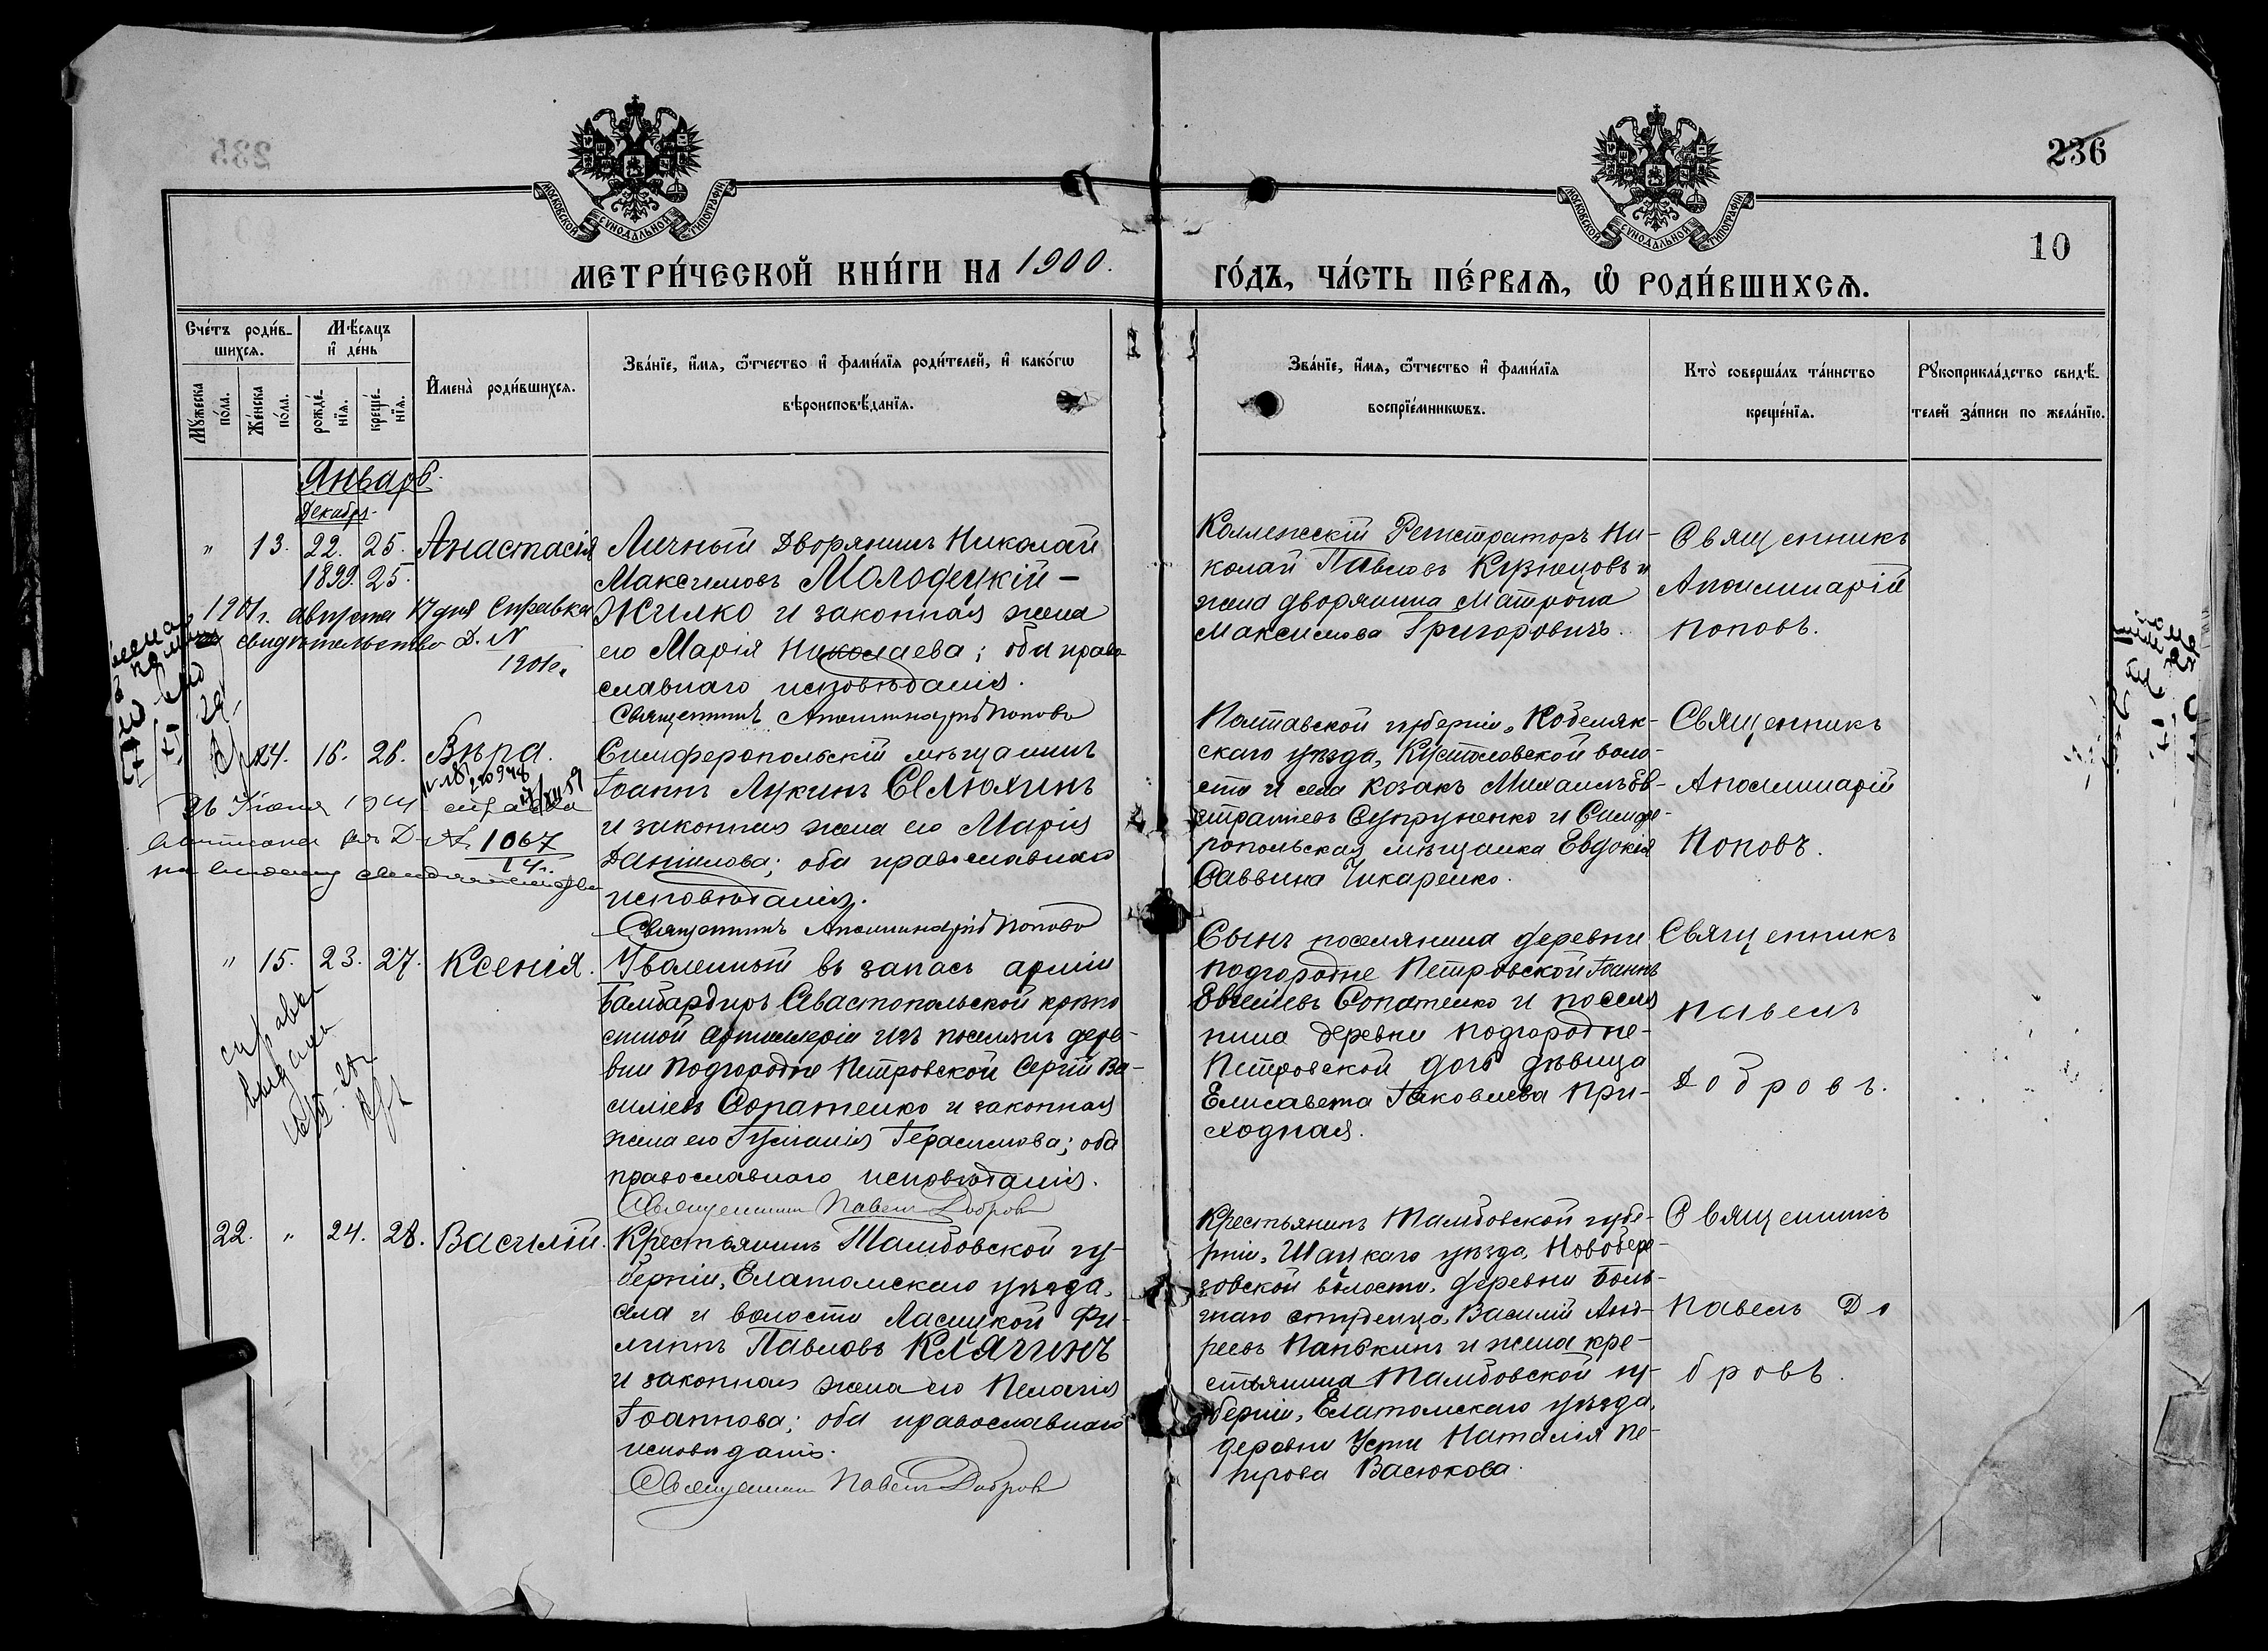 236
10
МОСКОВСКОЙ СѴНОДАЛЬНОЙ ТИПОГРАФІИ
МОСКОВСКОЙ СѴНОДАЛЬНОЙ ТИПОГРАФІИ
МЕТРИ́ЧЕСКОЙ КНИ́ГИ НА 1900.
ГО́ДЪ, ЧА́СТЬ ПЕ́РВАѦ, Ѡ҆ РОДИ́ВШИХСѦ.
Сче́тъ роди́в-
шихсѧ.
Мꙋ́жеска
по́ла.
Же́нска
по́ла.
Мѣ́сѧцъ
и҆ де́нь
рожде́-
нїѧ.
креще́-
нїѧ.
И҆мена̀ роди́вшихсѧ.
Зва́нїе, и҆́мѧ, ѻ҆́тчество и҆ фами́лїѧ роди́телей, и҆ како́гѡ
вѣроисповѣ́данїѧ.
Зва́нїе, и҆́мѧ, ѻ҆́тчество и҆ фами́лїѧ
воспрїе́мникѡвъ.
Кто̀ соверша́лъ та́инство
креще́нїѧ.
Рꙋкоприкла́дство свидѣ́-
телей за́писи по жела́нїю.
Январь.
Декабрь
" 13. 22. 25. Анастасія
1899. 25.
Личный Дворянинъ Николай
Максимовъ Молодецкій-
Жилко и законная жена
его Марія Николаева; оба право
славнаго исповѣданія.
Священникъ Аполлинарій Поповъ
Коллежскій Регистраторъ Ни-
колай Павловъ Кузнецовъ и
жена дворянина Матрона
Максимова Григоровичъ.
Священникъ
Аполлинарій
Поповъ.
1901г. августа 17 дня Справка
свидѣтельство Д. N
1901г.
14. 16. 26. Вѣра.
Симферопольскій мѣщанинъ
Іоаннъ Лукинъ Селюхинъ
и законная жена его Марія
Даніилова; оба православнаго
исповѣданія.
Священникъ Аполлинарій Поповъ
Полтавской губерніи, Кобеляк-
скаго уѣзда, Кустоловской воло-
сти и села козакъ Михаилъ Ев-
стратіевъ Супруненко и Симфе-
ропольская мѣщанка Евдокія
Саввина Чикаренко.
Священникъ
Аполлинарій
Поповъ.
справка
Д. N 1067
14 г.
" 15. 23. 27. Ксенія.
Уволенный въ запасъ арміи
Бамбардиръ Севастопольской крѣпо
стной Артиллеріи изъ поселянъ дере-
вни Подгородне Петровской Сергій Ва-
силіевъ Сопатенко и законная
жена его Іуліанія Герасимова; оба
православнаго исповѣданія.
Священникъ Павелъ Добровъ
Сынъ поселянина деревни
Подгородне Петровской Іоаннъ
Евгеніевъ Сопатенко и поселя
нина деревни Подгородне-
Петровской дочь дѣвица
Елисавета Іаковлева При-
сходная.
Священникъ
Павелъ
Добровъ.
справка
выдана
22. " 24. 28. Василій.
Крестьянинъ Тамбовской гу-
берніи, Елатомскаго уѣзда,
села и волости Ласицкой Фи-
липпъ Павловъ Клягинъ
и законная жена его Пелагія
Іоаннова; оба православнаго
исповѣданія.
Священникъ Павелъ Добровъ
Крестьянинъ Тамбовской губе-
рніи, Шацкаго уѣзда, Новобере-
зовской волости, деревни Боль-
шаго студенца, Василій Анд-
реевъ Панькинъ и жена кре-
стьянина Тамбовской гу-
берніи, Елатомскаго уѣзда,
деревни Усти Наталія Пе-
трова Васюкова.
Священникъ
Павелъ До
бровъ.